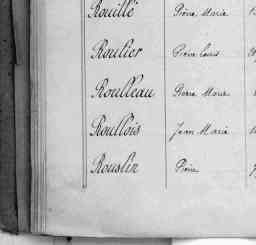 Rouillé Pierre Marie
Roulier Pierre Louis
Roulleau Pierre Marie
Roullois Jean Marie
Rouslin Pierre